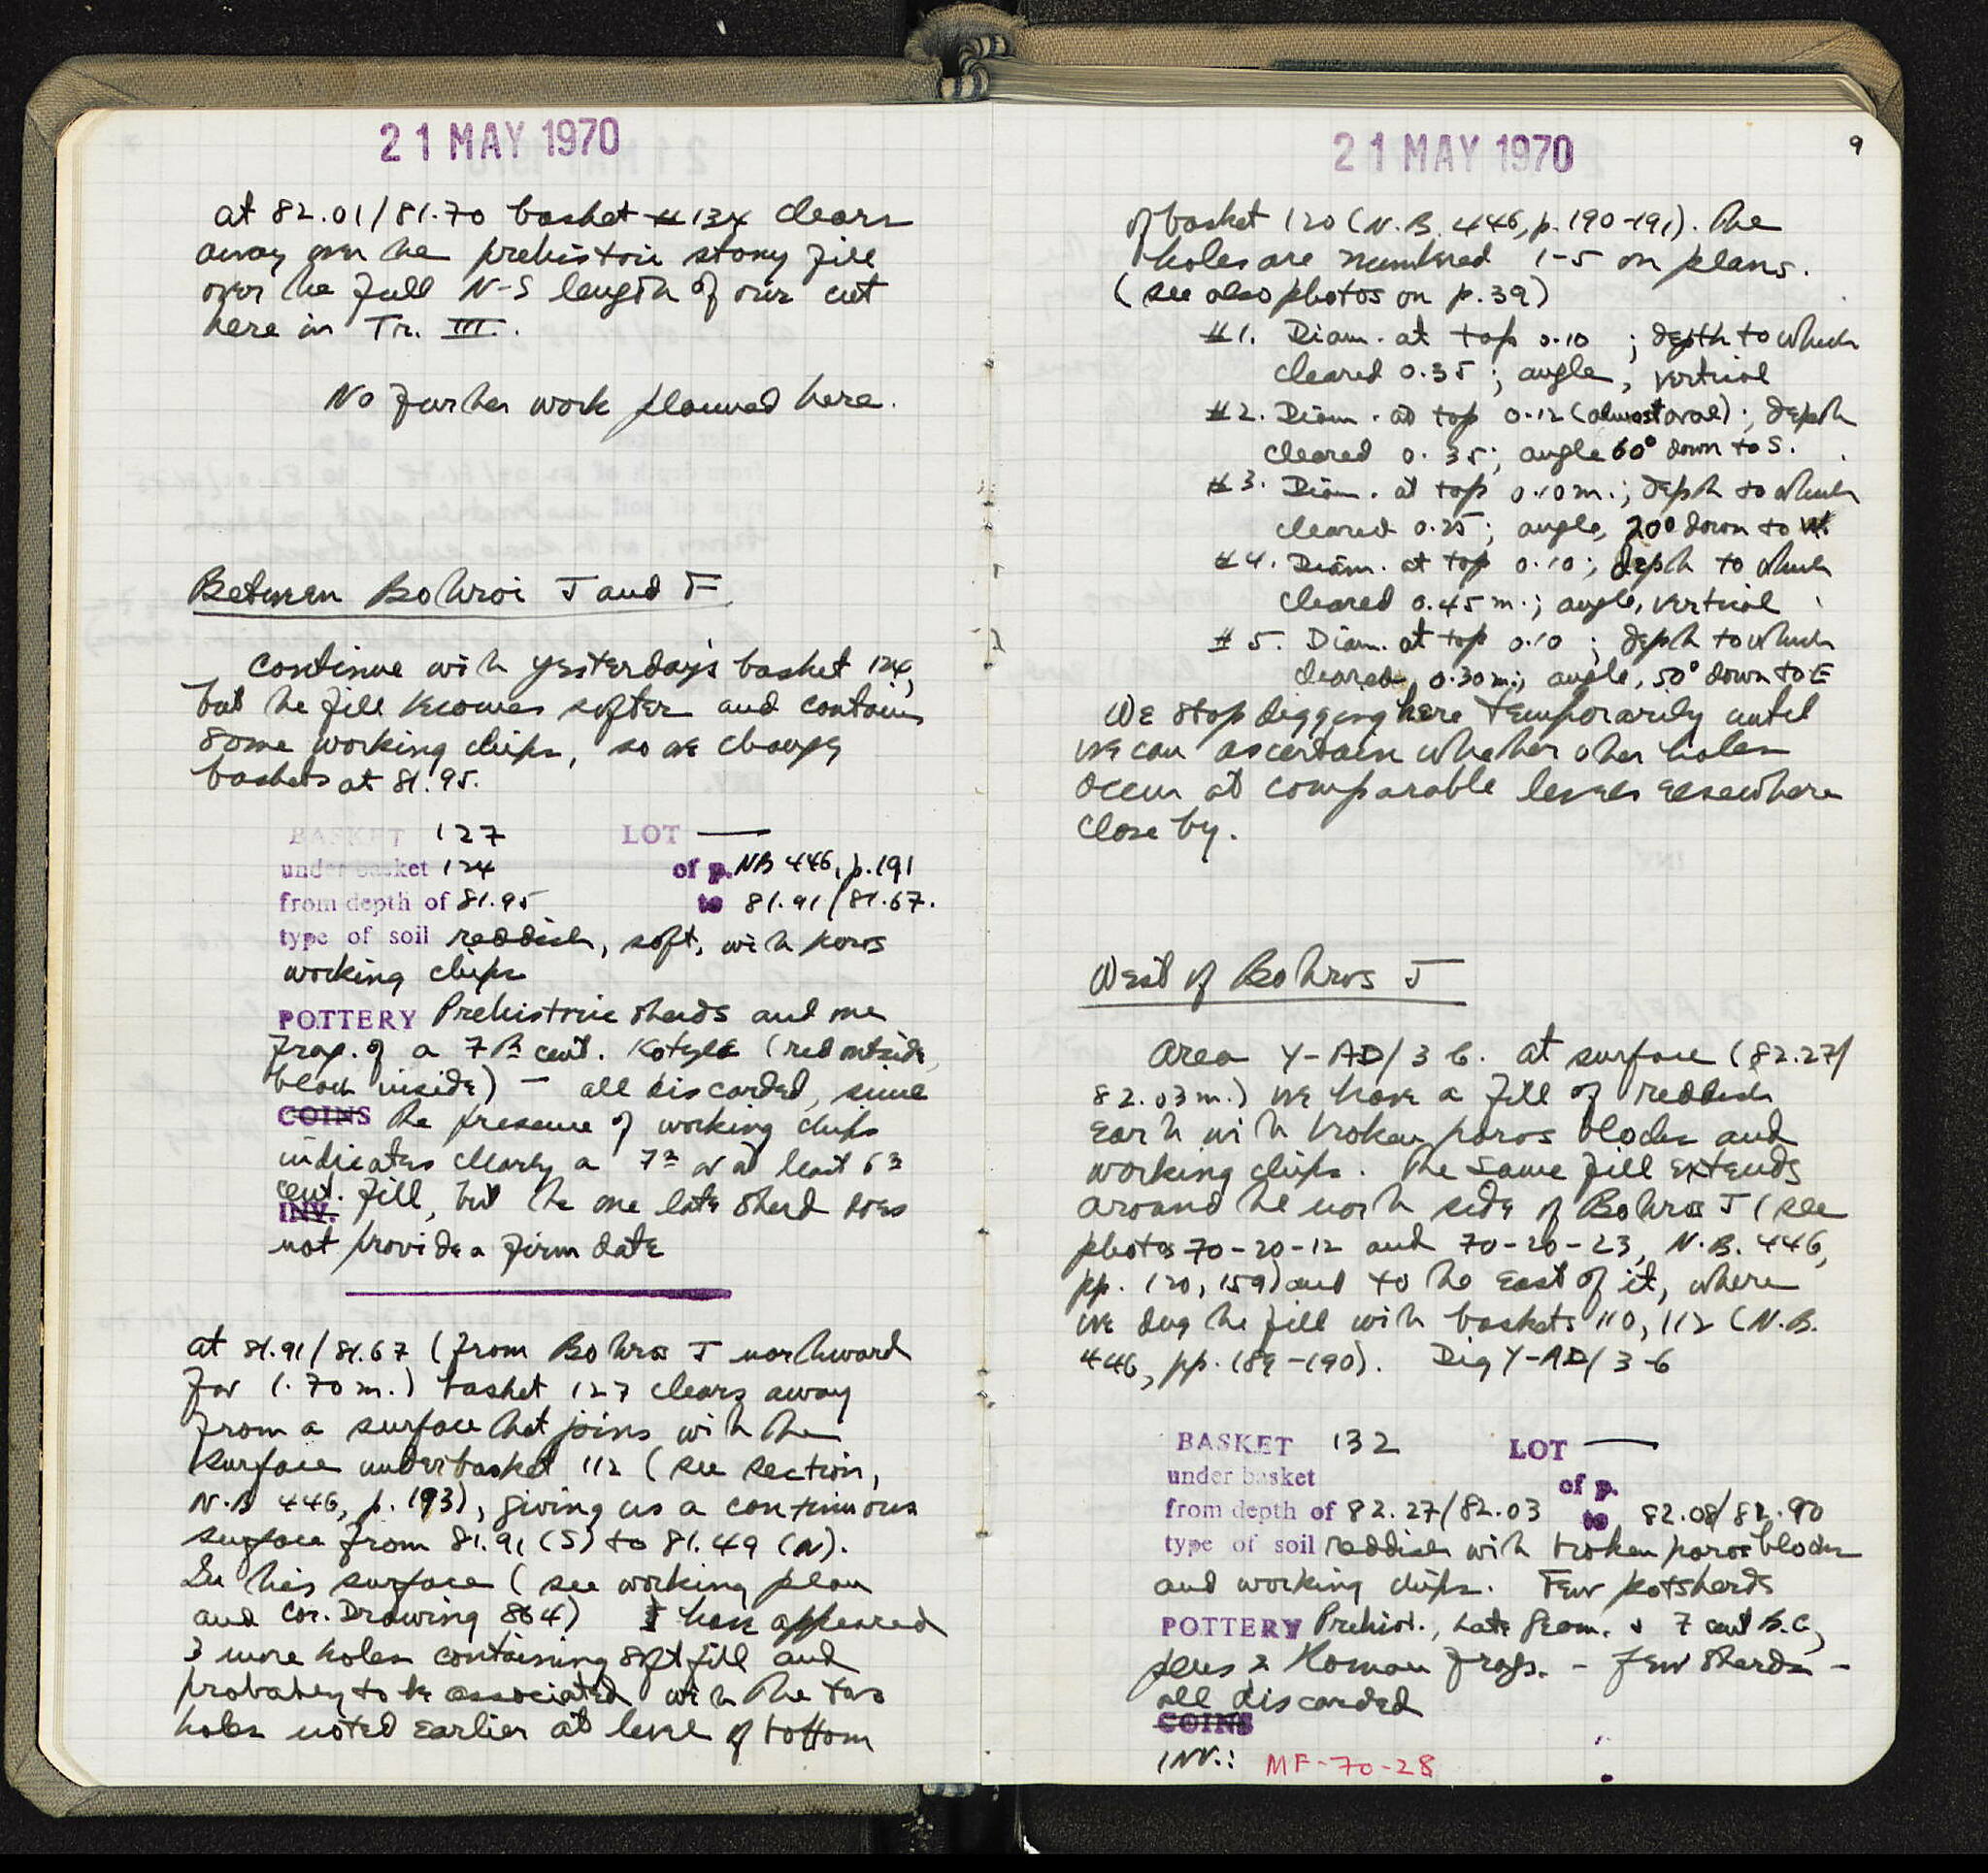 21 MAY 1970
at 82.01/81.70 basket # 134 clears
away the prehistoric stony fill
over the full N-S length of our cut
here in Tr. III.
No further work planned here.
Between Bothroi J and F
Continue with yesterday's basket 124,
but the fill becomes softer and contains
some working chips, so we change
baskets at 81.95.
BASKET 127 LOT —
under basket 124 of p. NB 446, p. 191
from depth of 81.95 to 81.91/81.67.
type of soil reddish, soft, with poros
working chips
POTTERY Prehistoric sherds and one
frag. of a 7th cent. Kotyle (red outside,
black inside) — all discarded, since
COINS the presence of working chips
indicates clearly a 7th or at least 6th
cent. fill, but the one late sherd does
INV.
not provide a firm date
at 81.91/81.67 (from Bothros J northward
for 1.70 m.) basket 127 clears away
from a surface that joins with the
surface under basket 112 (see section,
N.B 446, p. 193), giving us a continuous
surface from 81.91 (S) to 81.49 (N).
In this surface (see working plan
and Cor. Drawing 864) have appeared
3 more holes containing soft fill and
probably to be associated with the two
holes noted earlier at level of bottom
21 MAY 1970
9
of basket 120 (N.B. 446, p. 190-191). The
holes are numbered 1-5 on plans.
(see also photos on p. 39)
#1. Diam. at top 0.10 ; depth to which
cleared 0.35 ; angle, vertical
#2. Diam. at top 0.12 (almost oval) ; depth
cleared 0.35; angle 60° down to S.
#3. Diam. at top 0.10 m.; depth to which
cleared 0.25; angle, 20° down to W.
#4. Diam. at top 0.10; depth to which
cleared 0.45 m.; angle, vertical
#5. Diam. at top 0.10 ; depth to which
cleared 0.30 m.; angle, 50° down to E
We stop digging here temporarily until
we can ascertain whether other holes
occur at comparable levels elsewhere
close by.
West of Bothros J
Area Y-AD/3-6. At surface (82.27/
82.03 m.) we have a fill of reddish
earth with broken poros blocks and
working chips. The same fill extends
around the north side of Bothros J (see
photos 70-20-12 and 70-20-23, N.B. 446,
pp. 120, 159) and to the east of it, where
we dug the fill with baskets 110, 112 (N.B.
446, pp. 189-190). Dig Y-AD/3-6
BASKET 132 LOT —
under basket of p.
from depth of 82.27/82.03 to 82.08/81.90
type of soil reddish with broken poros blocks
and working chips. Few potsherds
POTTERY Prehist., Late Geom. & 7 cent B.C.,
plus 2 Roman frags. - few sherds -
all discarded
COINS
INV.: MF-70-28